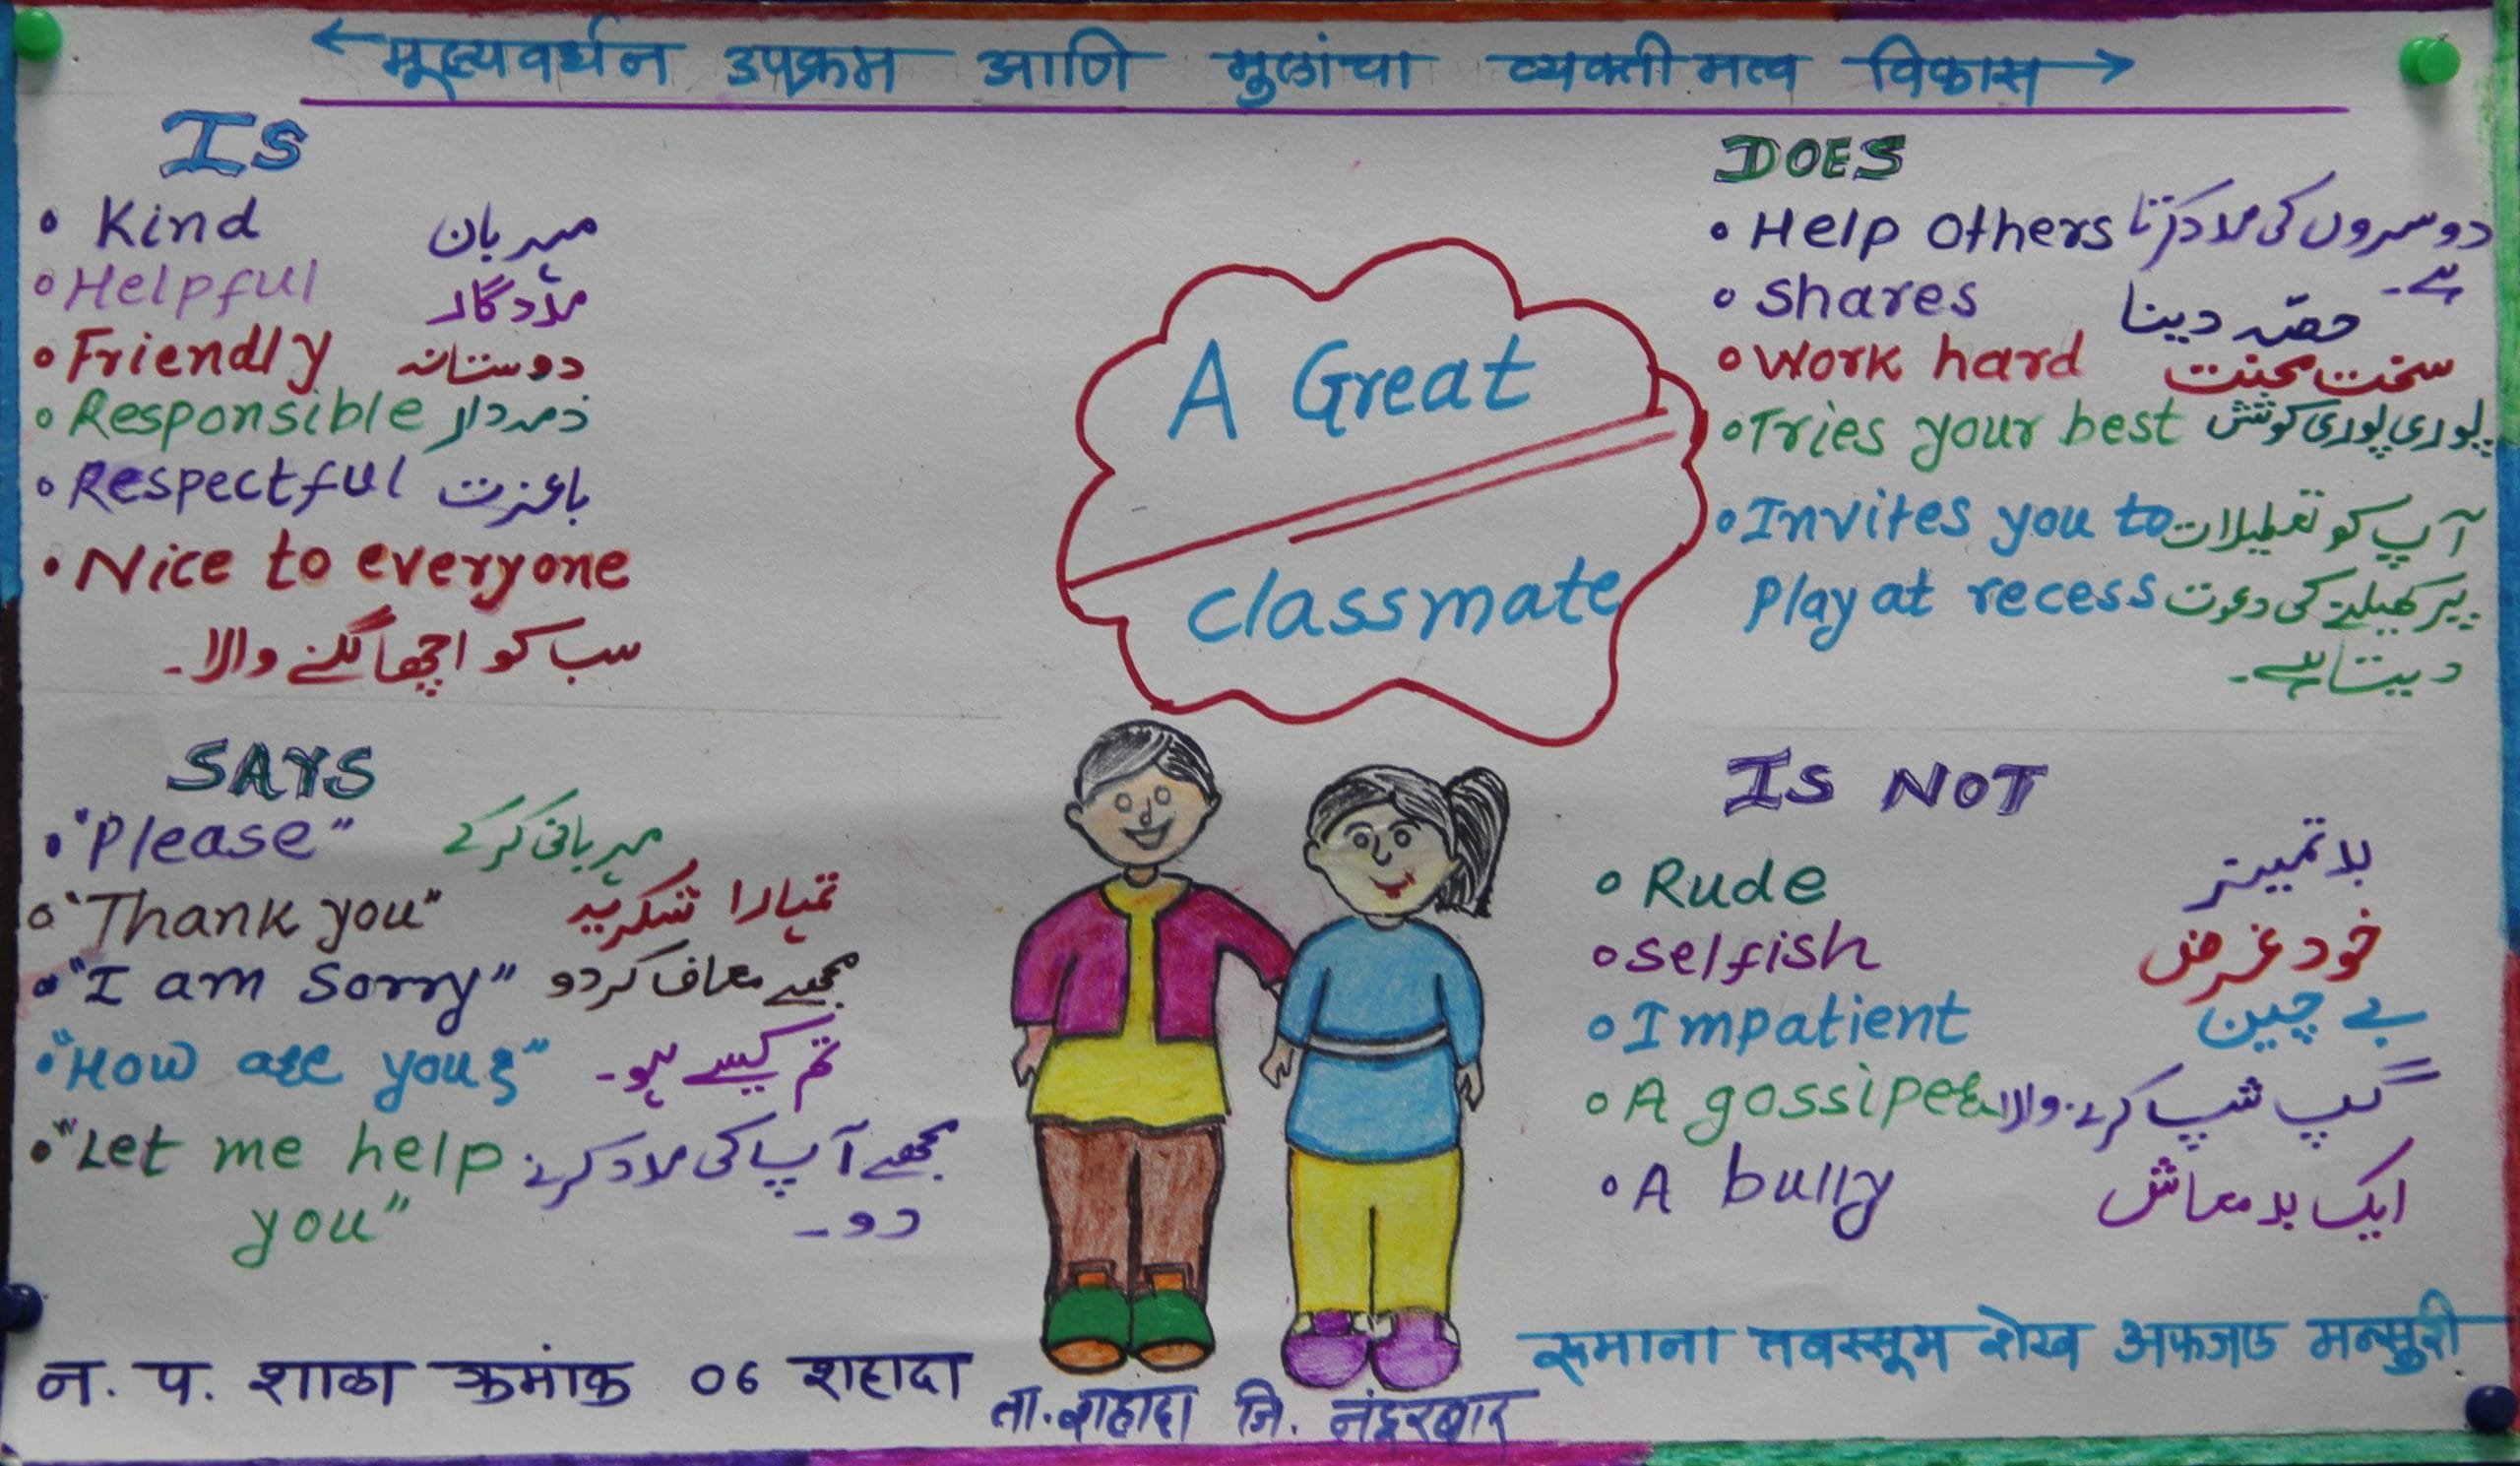 मूल्यवर्धन उपक्रम आणि मुलांचा व्यक्तीमत्व विकास
IS
• Kind مہربان
• Helpful مددگار
• Friendly دوستانہ
• Responsible ذمہ دار
• Respectful باعزت
• Nice to everyone
سب کو اچھا لگنے والا۔
A Great
classmate
DOES
• Help others دوسروں کی مدد کرتا
ہے۔
• Shares حصّہ دینا
• Work hard سخت محنت
• Tries your best پوری پوری کوشش
• Invites you to آپ کو تعطیلات
Play at recess پر کھیلنے کی دعوت
دیتا ہے۔
SAYS
• "Please" مہربانی کرکے
• "Thank you" تمہارا شکریہ
• "I am Sorry" مجھے معاف کردو
• "How are you?" تم کیسے ہو۔
• "Let me help مجھے آپ کی مدد کرنے
you" دو۔
IS NOT
• Rude بدتمیز
• selfish خود غرض
• Impatient بے چین
• A gossiper گپ شپ کرنے والا
• A bully ایک بدمعاش
न. प. शाळा क्रमांक 06 शहादा
ता. शहादा जि. नंदुरबार
रुमाना तबस्सूम शेख अफजल मन्सुरी